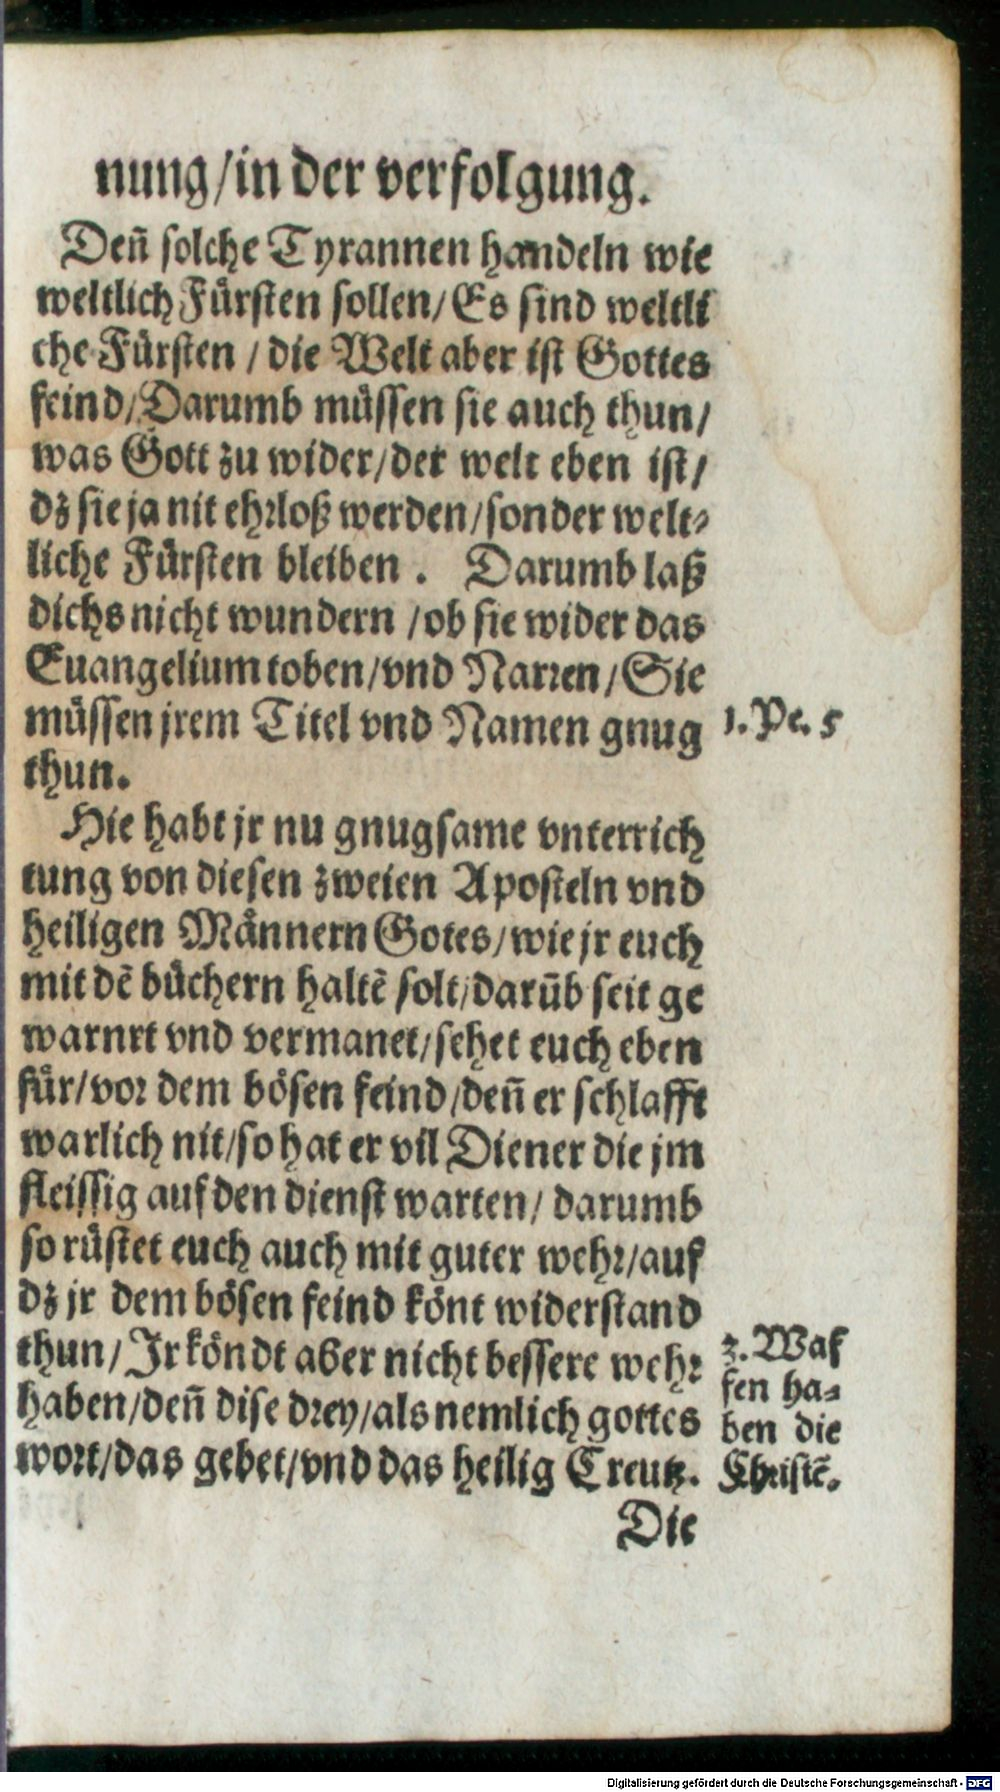 nung/in der verfolgung.
Deñ solche Tyrannen handeln wie
weltlich Fürsten sollen/Es sind weltli
che Fürsten/die Welt aber ist Gottes
feind/Darumb müssen sie auch thun/
was Gott zu wider/der welt eben ist/
dz sie ja nit ehrloß werden/sonder welt-
liche Fürsten bleiben. Darumb laß
dichs nicht wundern/ob sie wider das
Euangelium toben/vnd Narren/Sie
müssen jrem Titel vnd Namen gnug
1. Pe. 5
thun.
Hie habt jr nu gnugsame vnterrich
tung von diesen zweien Aposteln vnd
heiligen Männern Gotes/wie jr euch
mit dē büchern haltē solt/darūb seit ge
warnrt vnd vermanet/sehet euch eben
für/vor dem bösen feind/deñ er schlafft
warlich nit/so hat er vil Diener die jm
fleissig auf den dienst warten/darumb
so rüstet euch auch mit guter wehr/auf
dz jr dem bösen feind könt widerstand
thun/Ir köndt aber nicht bessere wehr
haben/deñ dise drey/als nemlich gottes
wort/das gebet/vnd das heilig Creutz.
3. Waf
fen ha-
ben die
Christē.
Die
Digitalisierung gefördert durch die Deutsche Forschungsgemeinschaft - DFG